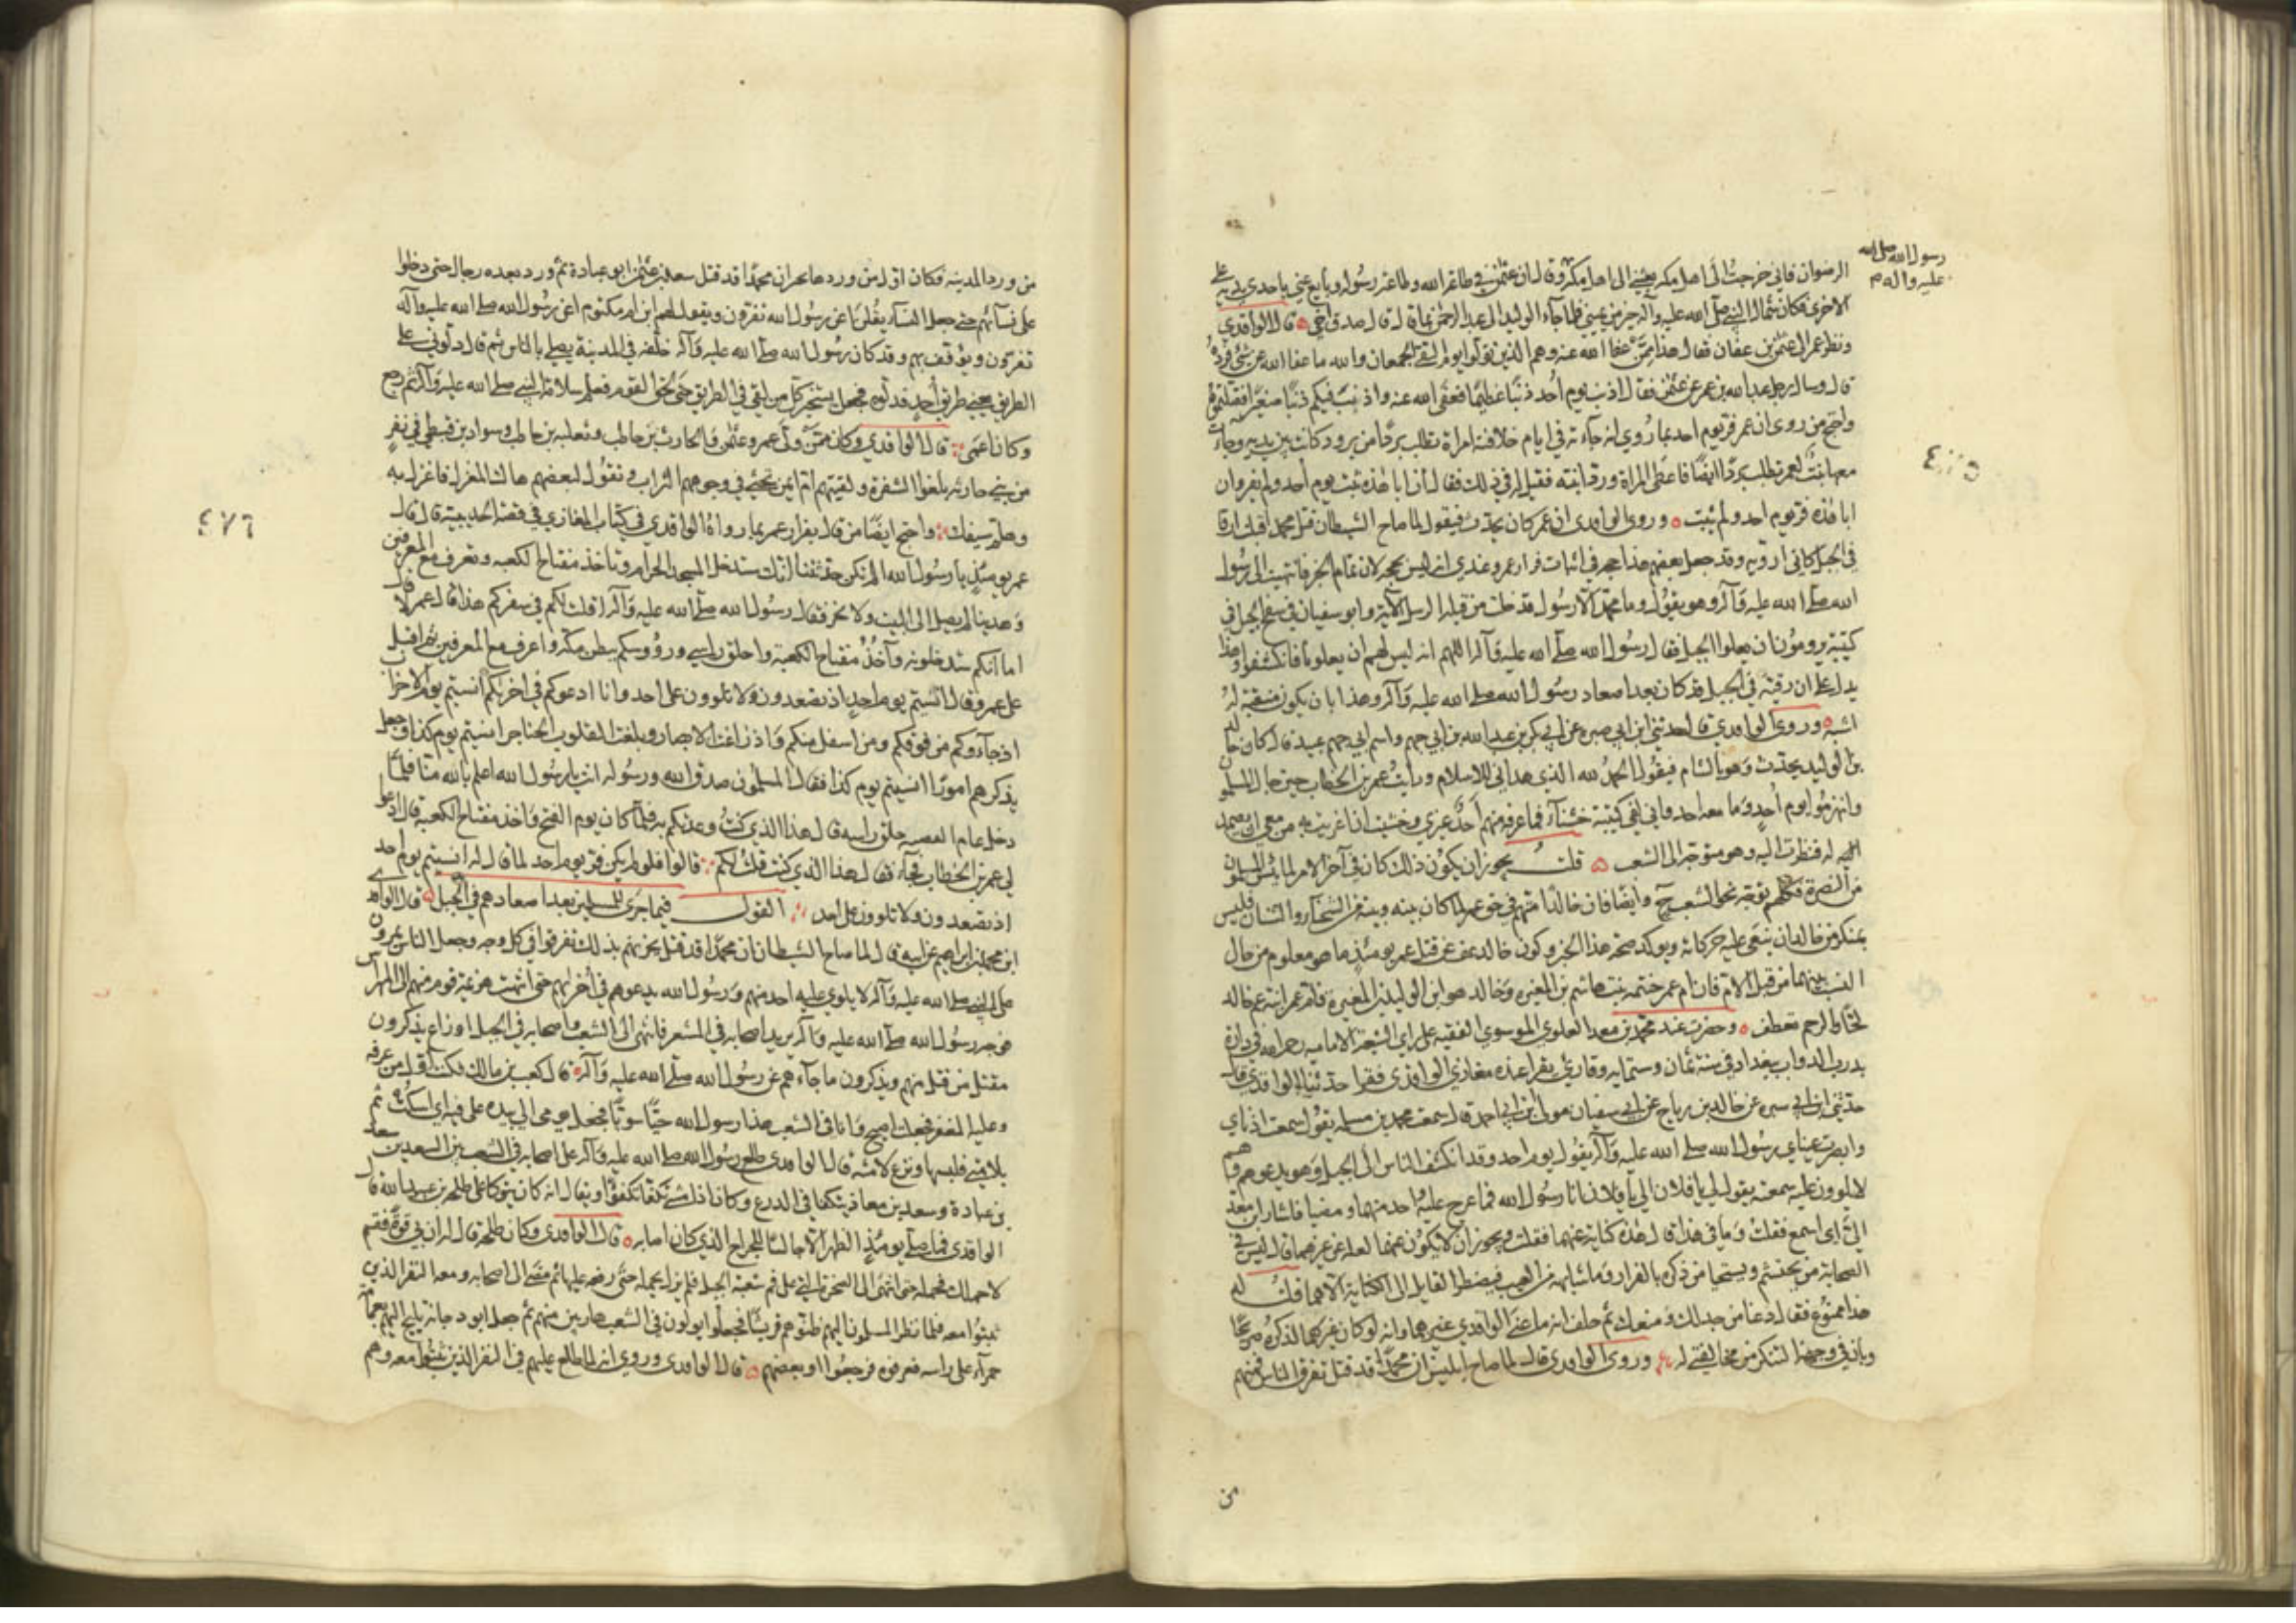 رسول الله صلى الله
عليه واله م
الرضوان فاني خرجت الى اهل مكة بعثني الى اهل مكة وقال ان عثمن في طاعة الله وطاعة رسوله وبايع عني باحدى يديه على
الاخرى فكان شمال النبي صلى الله عليه وآله خير من يميني فلما جآء الوليد الى عبد الرحمن بما قال قال صدق اخي قال الواقدي
ونظر عمر الى عثمن بن عفان فقال هذا ممن عفا الله عنه وهم الذين تولوا يوم التقى الجمعان والله ما عفا الله عن شيء فرده
قال وسال رجل عبد الله بن عمر عن عثمن فقال اذنب يوم احد ذنبا عظيما فعفى الله عنه واذنب فيكم ذنبا صغيرا فقتلتموه
واحتج من روى ان عمر فر يوم احد بما روي انه جآءته في ايام خلافته امراة تطلب بردا من برود كانت بين يديه وجاءت
معها بنت لعمر تطلب بردا ايضا فاعطى المراة ورد ابنته فقيل له في ذلك فقال ان ابا هذه ثبت يوم احد ولم يفر وان
ابا هذه فر يوم احد ولم يثبت وروى الواقدي ان عمر كان يحدث فيقول لما صاح الشيطان قتل محمد اقبلت ارقا
في الجبل كاني اروية وقد جعل بعضهم هذا حجة في اثبات فرار عمر وعندي انه ليس بحجة لان تمام الخبر فانتهيت الى رسول
الله صلى الله عليه وآله وهو يقول وما محمد الا رسول قد خلت من قبله الرسل الآية وابو سفيان في سفح الجبل في
كتيبة يرومون ان يعلوا الجبل فقال رسول الله صلى الله عليه وآله اللهم انه ليس لهم ان يعلونا فانكشفوا وهذا
يدل على ان رقيه في الجبل قد كان بعد اصعاد رسول الله صلى الله عليه وآله وهذا بان يكون منقبة له
اشبه وروى الواقدي قال حدثني ابن ابي سبرة عن ابي بكر بن عبد الله بن ابي جهم واسم ابي جهم عبيد قال كان خالد
بن الوليد يحدث وهو بالشام فيقول الحمد لله الذي هداني للاسلام ورايت عمر بن الخطاب حين جال المسلمون
وانهزموا يوم احد وما معه احد واني لفي كتيبة خشنآء فما عرفه منهم احد غيري وخشيت ان اغريت به من معي ان يصمدوا
اليه له فنظرت اليه وهو متوجه الى الشعب قلت يجوز ان يكون ذلك كان في آخر الامر لما يئس المسلمون
من النصرة فكلهم توجه نحو الشعب ح وايضا فان خالدا متهم في حق عمر لما كان بينه وبينه من الشحنآء والشنآن فليس
بمنكر من خالد ان ينعى عليه حركاته ويوكد صحة هذا الخبر وكون خالد عف عن قتل عمر يومئذ ما هو معلوم من حال
النسب بينهما من قبل الام فان ام عمر حنتمه بنت هاشم بن المغيره وخالد هو ابن الوليد بن المغيره فام عمر ابنة عم خالد
لحا والرحم تعطف وحضرت عند محمد بن معد العلوي الموسوي الفقيه على راي الشيعة الامامية رحمه الله في داره
بدرب الدواب ببغداد في سنة ثمان وستمايه وقارئ يقرا عنده مغازي الواقدي فقرا حدثنا الواقدي قال
حدثني ابن ابي سبره عن خالد بن رباح عن ابي سفيان مولى ابن ابي احمد قال سمعت محمد بن مسلمه يقول سمعت اذناي
وابصرت عيناي رسول الله صلى الله عليه وآله يقول يوم احد وقد انكشف الناس الى الجبل وهو يدعوهم وهم
لا يلوون عليه سمعته يقول الي يا فلان الي يا فلان انا رسول الله فما عرج عليه احد منهما ومضيا فاشار ابن معد
الي اي اسمع فقلت وما في هذا قال هذه كناية عنهما فقلت ويجوز ان لا يكون عنهما لعله عن غيرهما قال ليس في
الصحابة من يحتشم ويستحيا من ذكره بالفرار وما شابهه من العيب فيضطر القايل الى الكناية الا هما قلت له
هذا ممنوع فقال دعنا من جدلك ومنعك ثم حلف انه ما عنى الواقدي غيرهما وانه لو كان غيرهما لذكره صريحا
وبان في وجهه التنكر من مخالفتي له وروى الواقدي قال لما صاح ابليس ان محمدا قد قتل تفرق الناس فمنهم
من
من ورد المدينه فكان اول من وردها يخبر ان محمدا قد قتل سعد بن عثمن ابو عبادة ثم ورد بعده رجال حتى دخلوا
على نسآئهم حتى جعل النسآء يقلن اعن رسول الله تفرون ويقول لهم ابن ام مكتوم اعن رسول الله صلى الله عليه وآله
تفرون ويؤقف بهم وقد كان رسول الله صلى الله عليه وآله خلفه في المدينة يصلي بالناس ثم قال دلوني على
الطريق يعني طريق احد فدلوه فجعل يستخبر كل من لقي في الطريق حتى لحق القوم فعلم سلامة النبي صلى الله عليه وآله ثم رجع
وكان ممن ولى عمر وعثمن والحارث بن حاطب وثعلبه بن حاطب وسواد بن
من بني حارثه بلغوا الشقرة ولقيتهم ام ايمن تحثي في وجوههم التراب وتقول لبعضهم هاك المغزل فاغزل به
وهلم سيفك واحتج ايضا من قال بفرار عمر بما رواه الواقدي في كتاب المغازي في قصة الحديبية قال قال
عمر يومئذ يا رسول الله الم تكن حدثتنا انك ستدخل المسجد الحرام وتاخذ مفتاح الكعبه وتعرف مع المعرفين
وهدينا لم يصل الى البيت ولا نحر فقال رسول الله صلى الله عليه وآله اقلت لكم في سفركم هذا قال عمر لا قال
اما انكم ستدخلونه وآخذ مفتاح الكعبة واحلق راسي ورؤوسكم ببطن مكه واعرف مع المعرفين ثم اقبل
على عمر وقال انسيتم يوم احد اذ تصعدون ولا تلوون على احد وانا ادعوكم في اخركم انسيتم يوم الاحزاب
اذ جآءوكم من فوقكم ومن اسفل منكم واذ زاغت الابصار وبلغت القلوب الحناجر انسيتم يوم كذا وجعل
يذكرهم امورا انسيتم يوم كذا فقال المسلمون صدق الله ورسوله انت يا رسول الله اعلم بالله منا فلما
دخل عام القضية وحلق راسه قال هذا الذي كنت وعدتكم به فلما كان يوم الفتح واخذ مفتاح الكعبة قال ادعوا
لي عمر بن الخطاب فجآء فقال هذا الذي كنت قلت لكم قالوا فلو لم يكن فر يوم احد لما قال له انسيتم يوم احد
اذ تصعدون ولا تلوون على احد القول فيما جرى للمسلمين بعد اصعادهم في الجبل قال الواقدي
ابن محمد بن ابراهيم عن ابيه قال لما صاح الشيطان ان محمدا قد قتل يحزنهم بذلك تفرقوا في كل وجه وجعل الناس يمرون
على النبي صلى الله عليه وآله لا يلوي عليه احد منهم ورسول الله يدعوهم في أخراهم حتى انتهت هزيمة قوم منهم الى المهراس
فتوجه رسول الله صلى الله عليه وآله يريد اصحابه في الشعب فانتهى الى الشعب واصحابه في الجبل اوزاع يذكرون
مقتل من قتل منهم ويذكرون ما جآءهم عن رسول الله صلى الله عليه وآله قال كعب بن مالك فكنت اول من عرفه
وعليه المغفر فجعلت اصيح وانا في الشعب هذا رسول الله حيا سويا فجعل يومي الي بيده على فيه اي اسكت ثم
بلامتي فلبسها ونزع لامته قال الواقدي طلع رسول الله صلى الله عليه وآله على اصحابه في الشعب بين السعدين سعد
بن عبادة وسعد بن معاذ يتكفا في الدرع وكان اذا مشى تكفا تكفؤا ويقال انه كان يتوكا على طلحه بن عبيد الله قال
الواقدي فما صلى يومئذ الظهر الا جالسا للجراح الذي كان اصابه قال الواقدي وكان طلحه قال له ان بي قوة فقم
لاحملك فحمله حتى انتهى الى الصخره التي على فم شعبة الجبل فلم يزل يحمله حتى رفعه عليها ثم مضى الى اصحابه ومعه النفر الذين
ثبتوا معه فلما نظر المسلمون اليهم ظنوهم قريشا فجعلوا يولون في الشعب هاربين منهم ثم جعل ابو دجانه يليح اليهم بعمامة
حمرآء على راسه فعرفوه فرجعوا او بعضهم قال الواقدي وروي انه لما طلع عليهم في النفر الذين ثبتوا معه وهم
٤٧٦